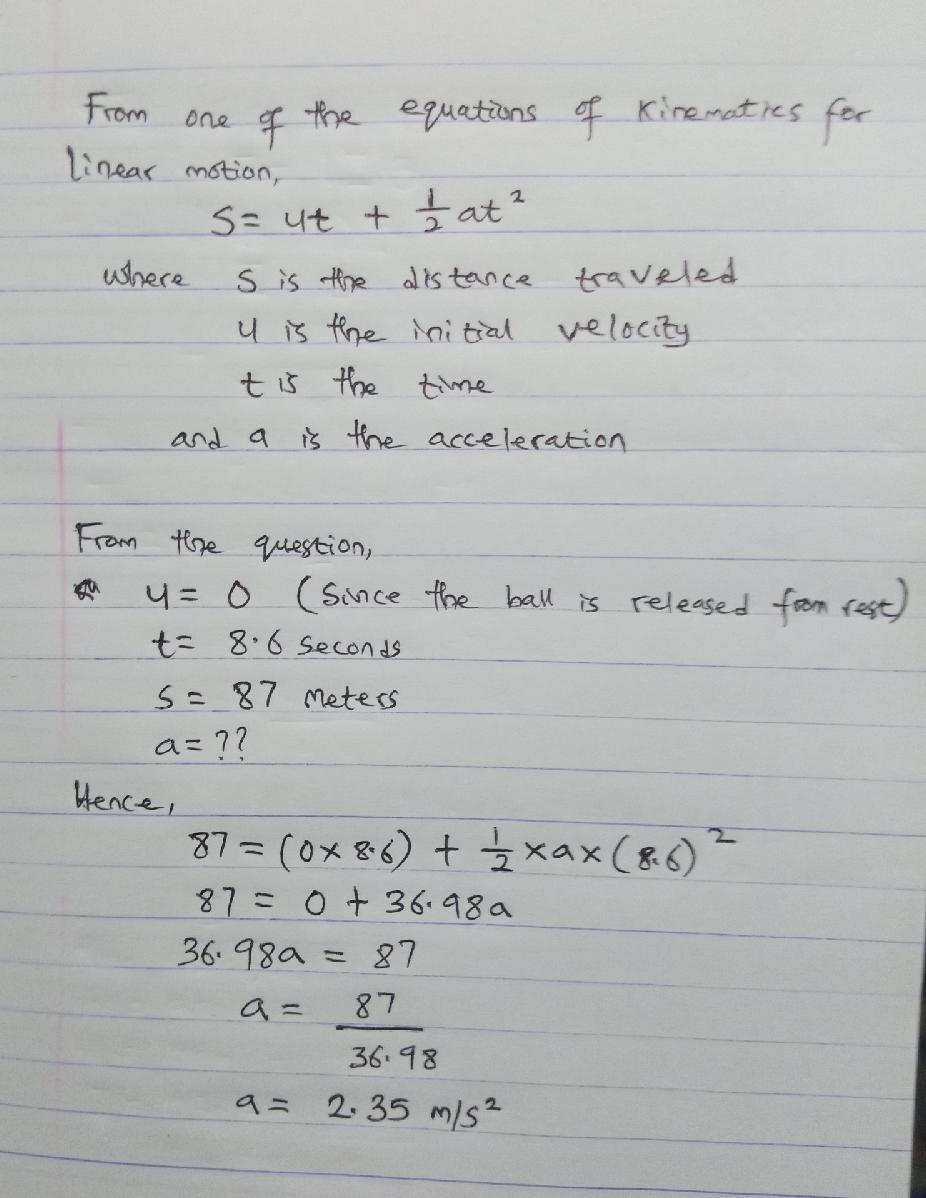 From one of the equations of Kinematics for
linear motion,
S= ut + 1/2 at²
where S is the distance traveled
u is the initial velocity
t is the time
and a is the acceleration
From the question,
u = 0 (Since the ball is released from rest)
t= 8.6 Seconds
S = 87 Meters
a = ??
Hence,
87 = (0 × 8.6) + 1/2 × a × (8.6)²
87 = 0 + 36.98a
36.98a = 87
a = 87
36.98
a = 2.35 m/s²